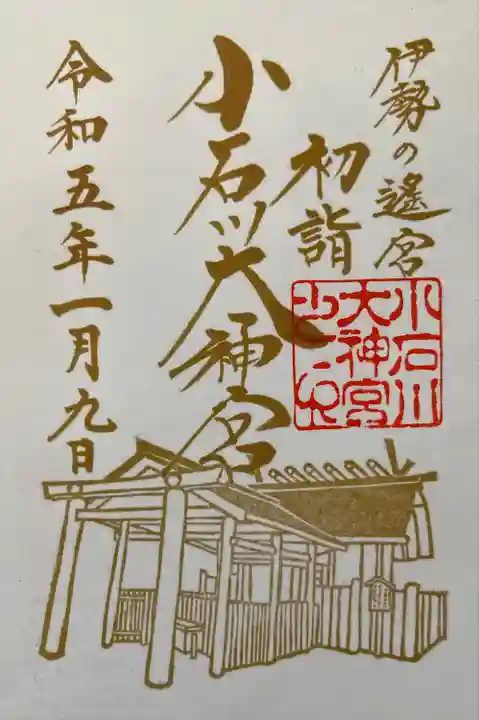 伊勢の遙宮
初詣
小石川大神宮
令和五年一月九日
小石川
大神宮
之印